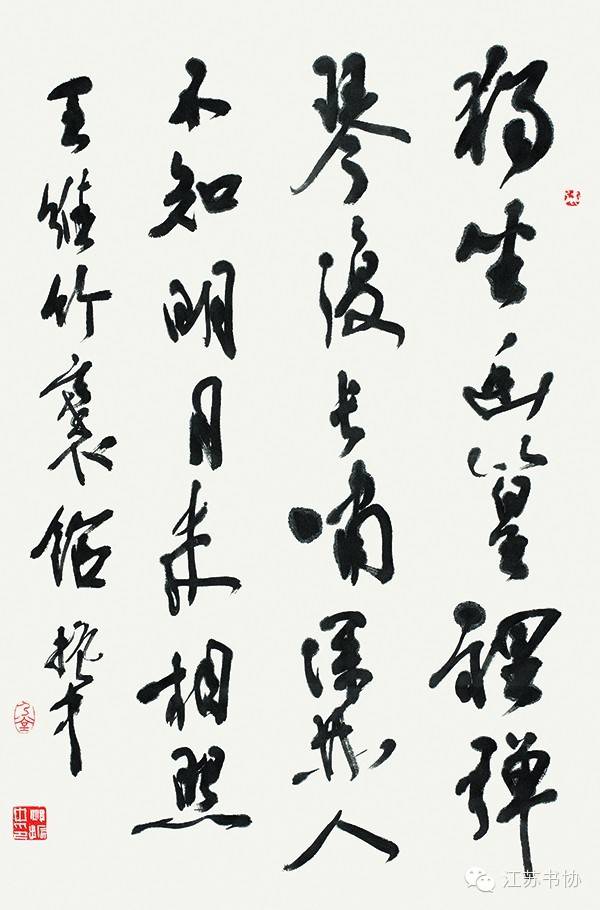 獨坐幽篁裡彈
琴復長嘯深林人
不知明月来相照
王維竹裏館
江苏书协